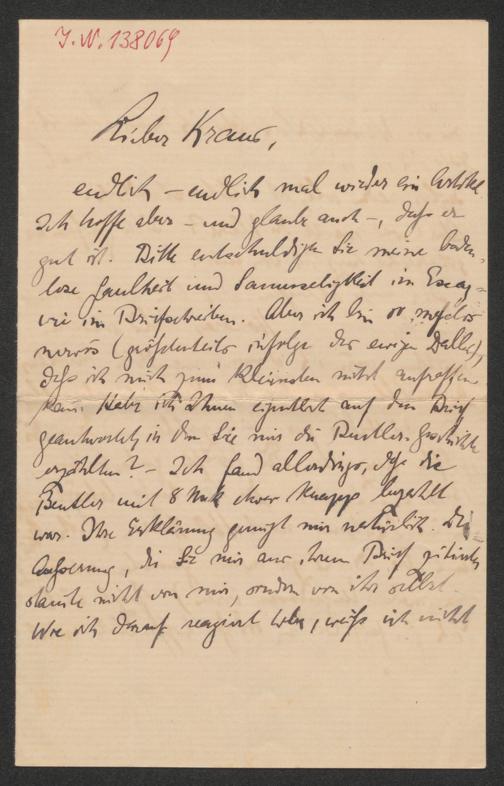 J.N. 138069
Lieber Kraus,
endlich – endlich mal wieder ein Artikel.
Ich hoffe aber – und glaube auch –, daß er
gut ist. Bitte entschuldigen Sie meine boden-
lose Faulheit und Saumseligkeit im Essay-
wie im Briefschreiben. Aber ich bin so
nervös (größtenteils infolge des ewigen Dalles),
daß ich mich zum Kleinsten nicht aufraffen
kann. Habe ich Ihnen eigentlich auf den Brief
geantwortet, in dem Sie mir die Beutler-Geschichte
erzählten? – Ich fand allerdings, daß die
Beutler mit 8 Mk etwas knapp bezahlt
war. Ihre Erklärung genügt mir natürlich. Die
Äußerung, die Sie mir aus ihrem Brief zitierten
stammte nicht von mir, sondern von ihr selbst.
Wie ich darauf reagiert habe, weiß ich nicht